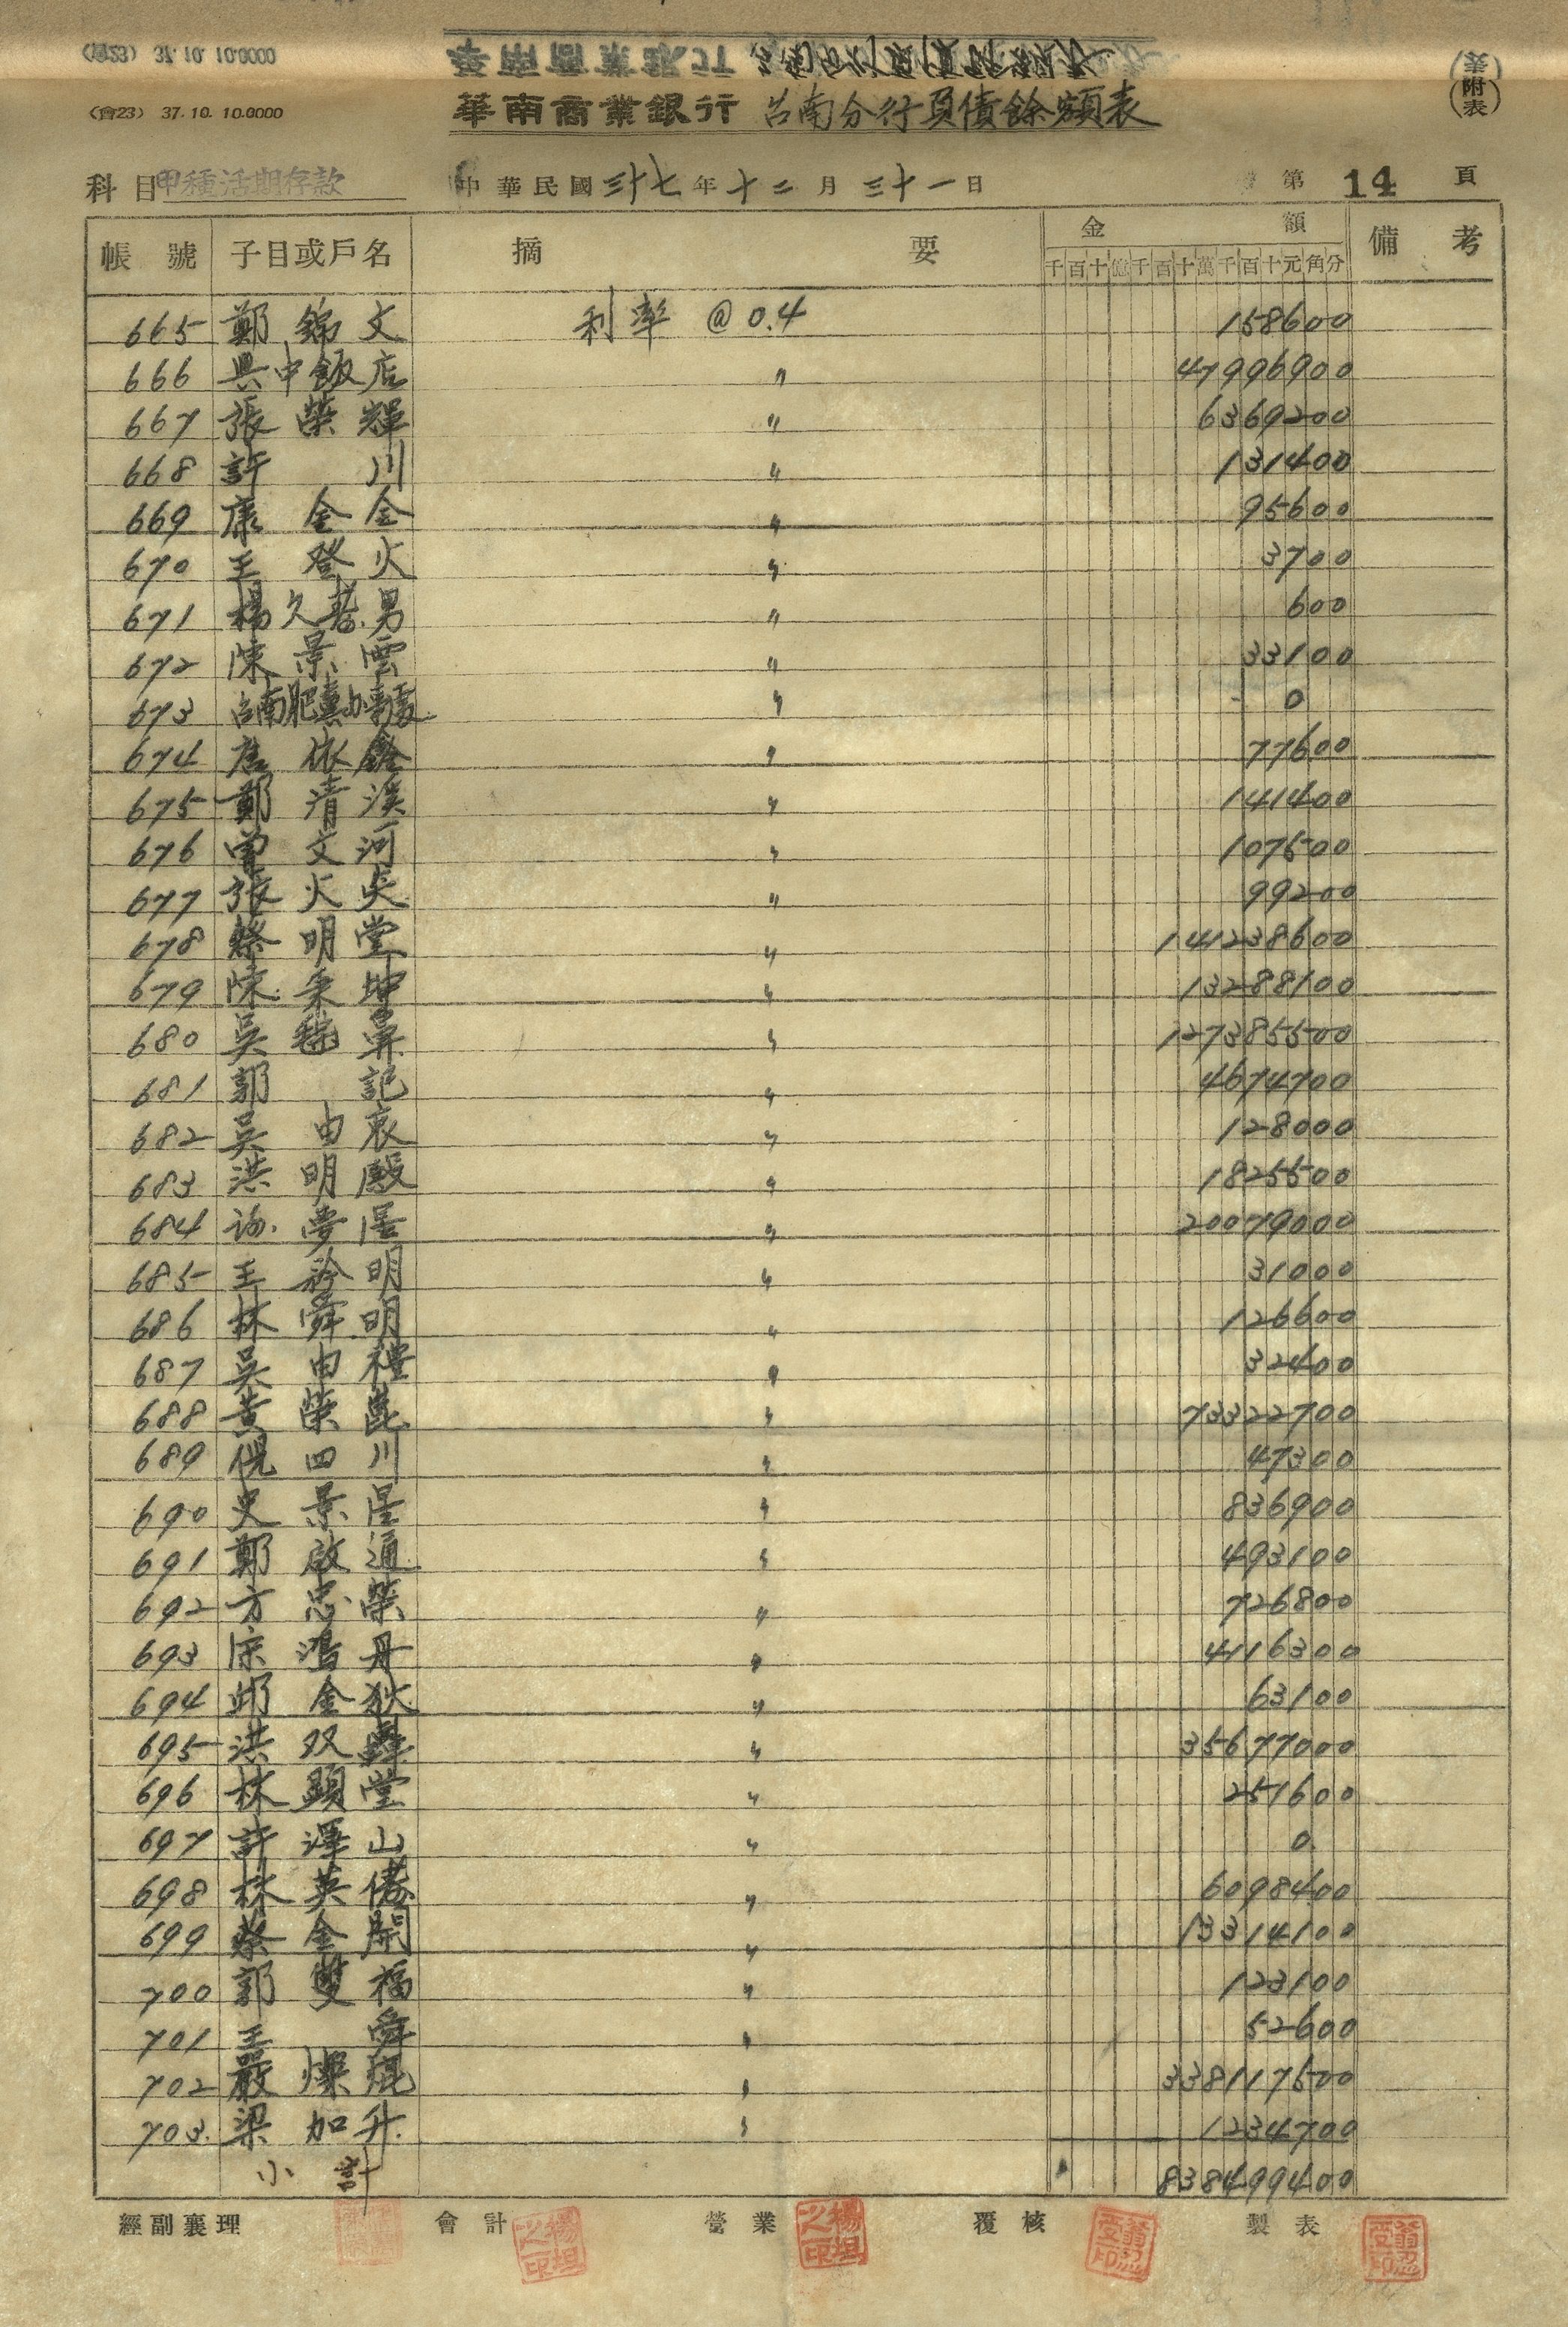 (會23) 37.10.10.0000
華南商業銀行 台南分行負債餘額表
(附表)
科目 甲種活期存款 中華民國三十七年十二月三十一日 第14頁
帳號 子目或戶名 摘要 金額 備考
千百十億千百十萬千百十元角分
665 鄭錦文 利率 @0.4 158600
666 興中飯店 〃 47996900
667 張榮輝 〃 6369200
668 許川 〃 131400
669 康金全 〃 95600
670 王登火 〃 3700
671 楊久 男 〃 600
672 陳景雲 〃 33100
673 台南肥 辦事處 〃 0
674 依鑫 〃 77600
675 鄭清溪 〃 141400
676 曾文河 〃 107500
677 張火炎 〃 99200
678 蔡明堂 〃 141238600
679 陳秉坤 〃 13288100
680 吳 〃 127385500
681 郭記 〃 4674700
682 吳由 〃 128000
683 洪明殿 〃 1825500
684 夢 〃 20079000
685 王 明 〃 31000
686 林舜明 〃 126600
687 吳由禮 〃 32400
688 黃榮崑 〃 73322700
689 倪四川 〃 47300
690 史景星 〃 836900
691 鄭啟通 〃 493100
692 方忠榮 〃 726800
693 鴻丹 〃 4116300
694 邱金狄 〃 63100
695 洪双 〃 35677000
696 林顕堂 〃 251600
697 許澤山 〃 0
698 林英 〃 6098400
699 蔡金開 〃 13314100
700 郭雙福 〃 123100
701 王舜 〃 52600
702 嚴燦焜 〃 338117500
703 梁加升 〃 1234700
小計 838499400
經副襄理 會計 營業 覆核 製表
楊坦之印 楊坦之印